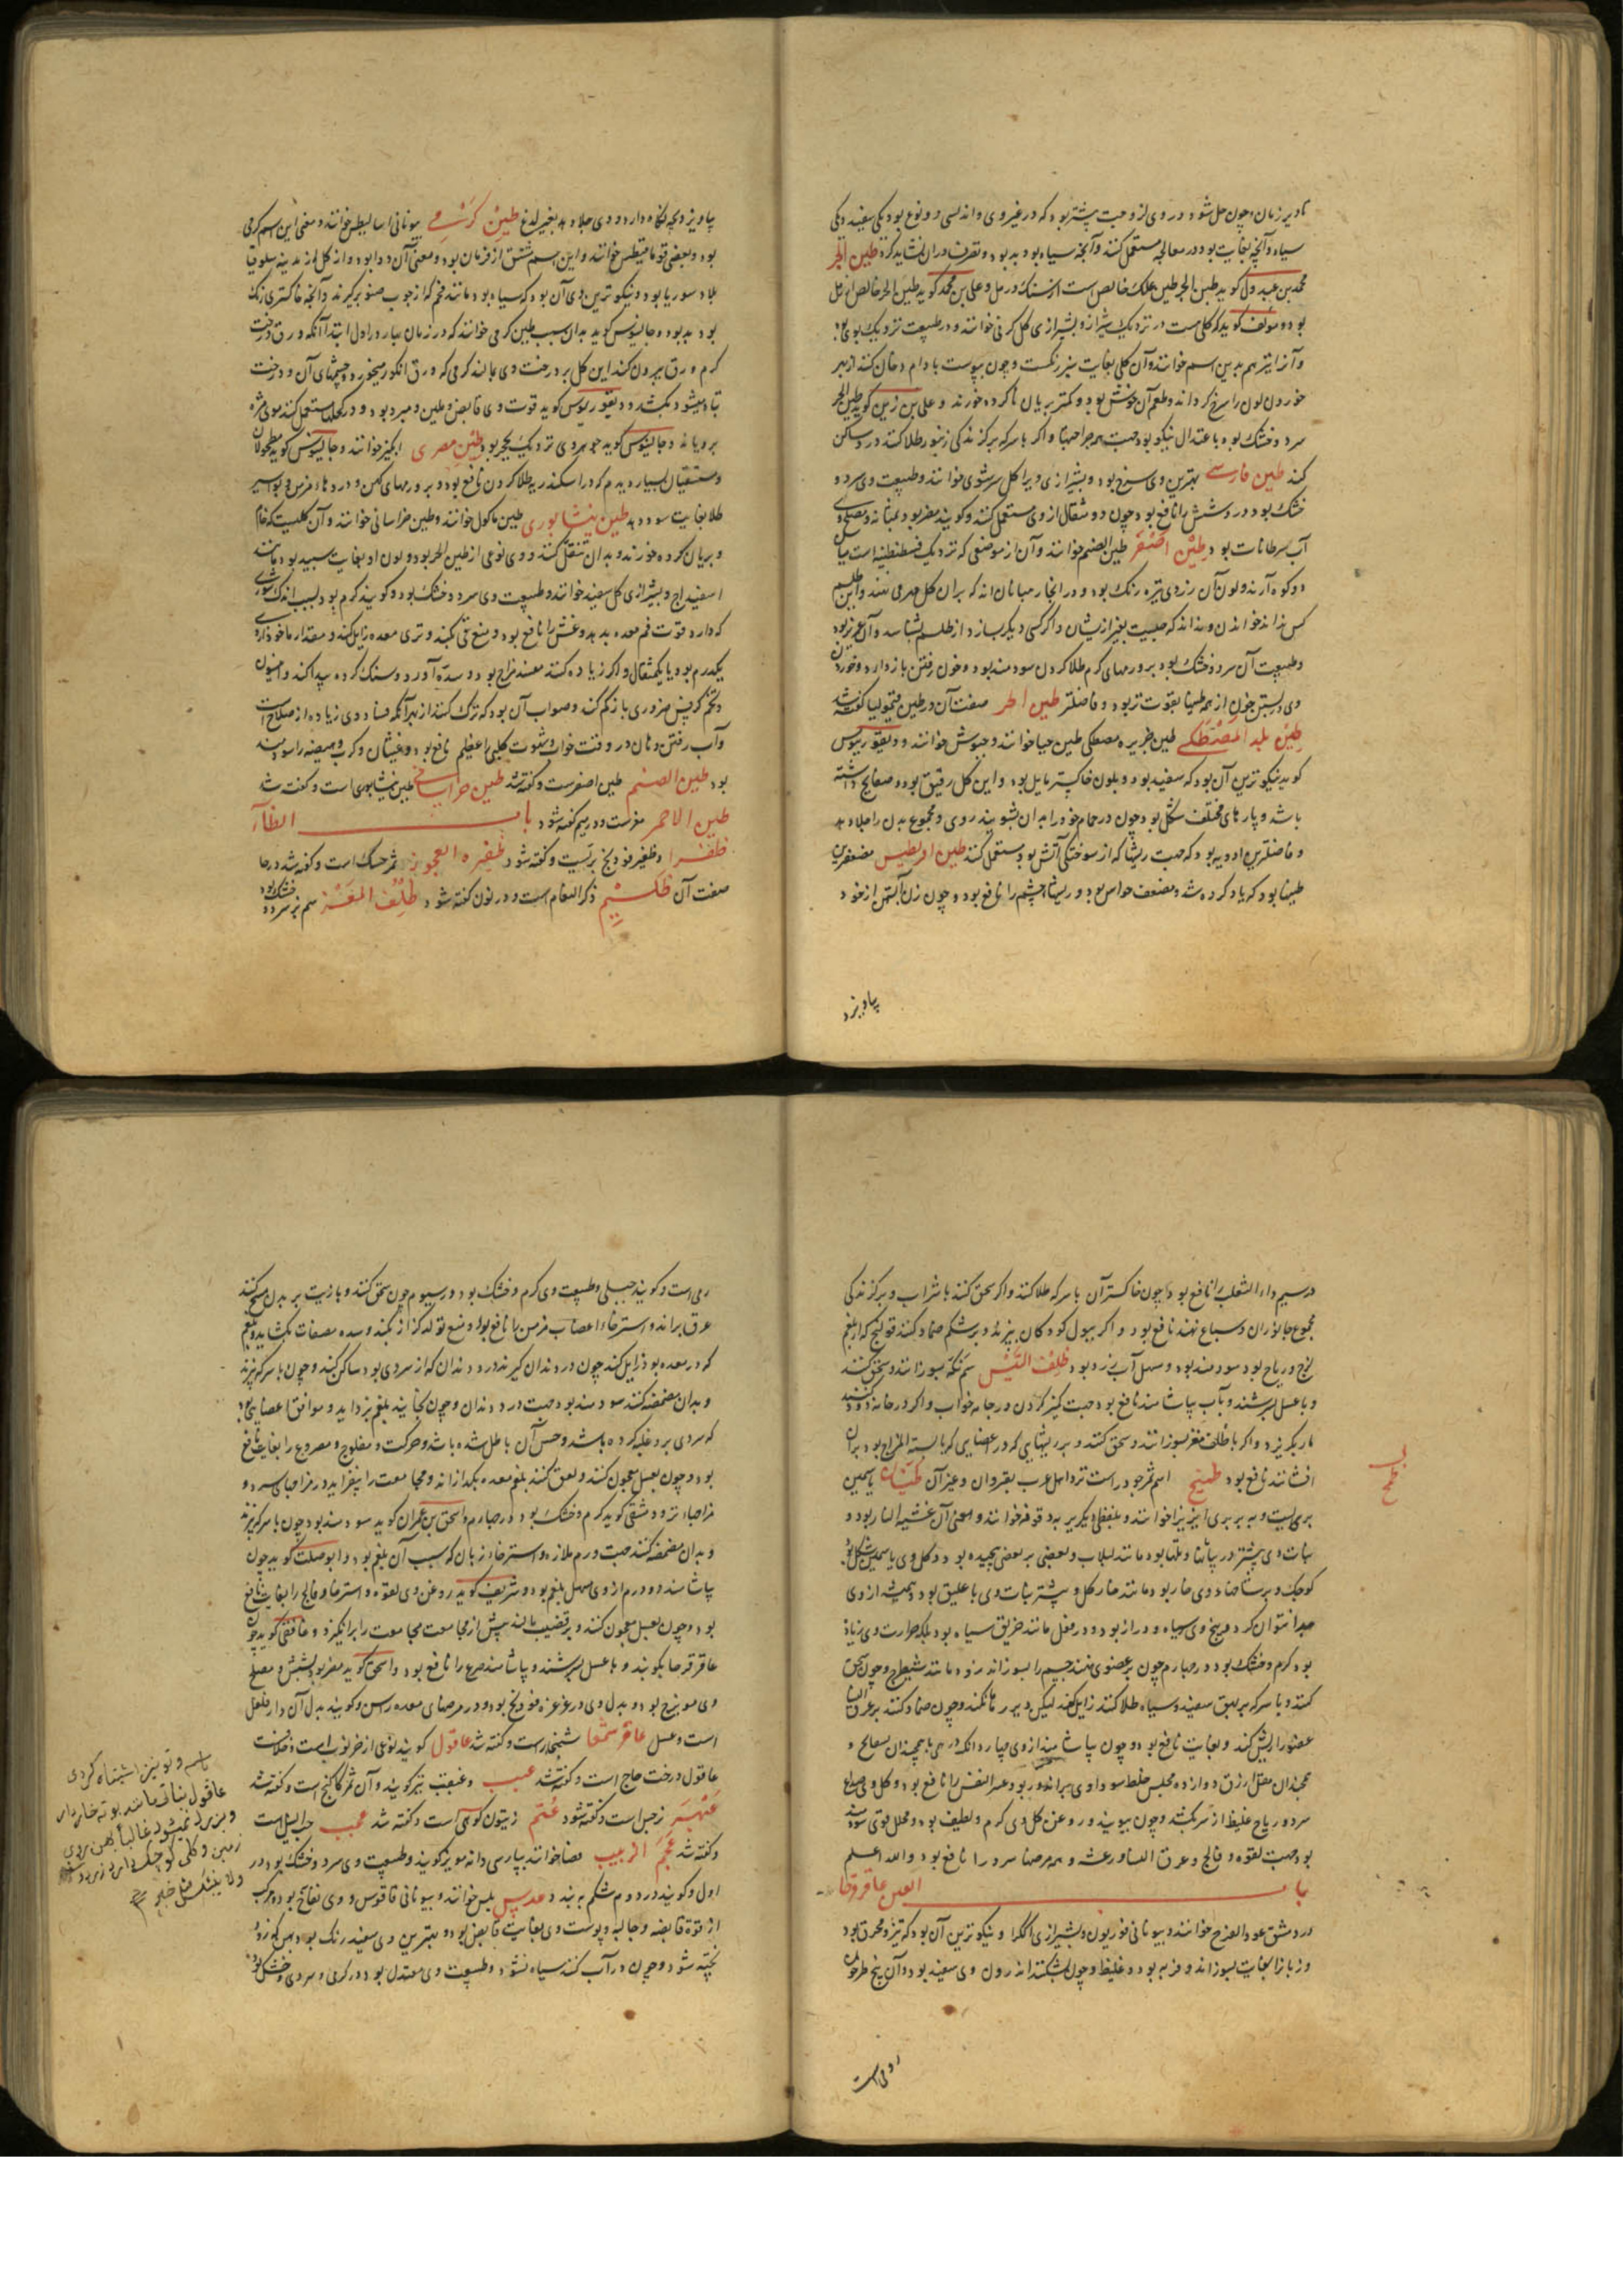 تا دیر زمان و چون حل شود در وی لزوجیت بیشتر بود که در غیر وی و اندلسی دو نوع بود یکی سفید و یکی
سیاه و آنچه بغایت بود در معالجه مستعمل کنند و آنچه سیاه بود بد بود و تصرف در آن نشاید کرد طین الحر
محمد بن عبدون گوید طین الحر طین علک خالص است از سنگ و رمل و علی بن محمد گوید طین الحر خالص از رمل
بود و مؤلف گوید که گلی است در نزدیک شیراز و بشیرازی گل گرنی خوانند و در طبیعت نزدیک بوی بود
و آنرا نیز هم بدین اسم خوانند و آن گلی بغایت سبز رنگست و چون بپوست بادام دخان کنند از بهر
خوردن لون را سرخ گرداند و طعم آن خوش بود و کمتر بریان ناکرده خورند و علی بن زین گوید طین الحر
سرد و خشک بود باعتدال نیکو بود جهت جراحتها و اگر با سرکه بر گزندگی زنبور طلا کنند درد ساکن
کند طین فارسی بهترین وی سرخ بود و بشیرازی ویرا گل سرشوی خوانند و طبیعت وی سرد و
خشک بود و درد شش را نافع بود چون دو مثقال از وی مستعمل کنند و گویند مضر بود بمثانه و مصلح وی
آب سرطانات بود طین اصفر طین الصنم خوانند و آن از موضعی که نزدیک قسطنطنیه است میان
دو کوه آرند و لون آن زردی تیره رنگ بود و در آنجا رهبانان اند که بر آن گل مهر می نهند و این طلسم
کس نداند خواندن و نداند که چیست بغیر از ایشان و اگر کسی دیگر بسازد از طلسم شناسد و آن عزیز بود
و طبیعت آن سرد و خشک بود بر ورمهای گرم طلا کردن سودمند بود و خون رفتن باز دارد و خوردن
وی در بستن خون از همه طینها بقوت تر بود و فاضلتر طین احمر صفت آن در طین قیمولیا گفته شد
طین بلد المصطکی طین جزیره مصطکی طین حیا خوانند و جیوش خوانند و دیسقوریدوس
گوید نیکوترین آن بود که سفید بود و بلون خاکستر مایل بود و این گل رقیق بود و صفایح داشته
باشد و پارهای مختلف شکل بود چون در حمام خود را بدان بشویند روی و مجموع بدن را جلا دهد
و فاضلترین ادویه بود که جهت ریشها که از سوختگی آتش بود مستعمل کنند طین اریطیس مضعفترین
طینها بود که یاد کرده شد و مضعف حواس بود و ریشها چشم را نافع بود و چون زن آبستن از خود
بیاویزد
بیاویزد بچه نگاه دارد و وی جلا دهد بغیر لدغ طین کرمی بیونانی اسالیطس خوانند و معنی این اسم کرمی
بود و بعضی قوم ماقیطس خوانند و این اسم مشتق از فرمان بود و معنی آن دوا بود و از گل از مدینه سلوقیا
بلاد سوریا بود و نیکوترین وی آن بود که سیاه بود مانند فحم که از چوب صنوبر گیرند و آنچه خاکستری رنگ
بود بد بود و جالینوس گوید بدان سبب طین کرمی خوانند که در زمان بهار در اول ابتدا آنکه ورق درخت
کرم ورق بیرون کند این گل بر درخت وی مالند کرمی که ورق انگور میخورد و چشمهای آن و درخت
تباه میشود بکشد و دیسقوریدوس گوید قوت وی قابض و ملین و مبرد بود و در کحلها مستعمل کنند موی مژه
برویاند و جالینوس گوید جوهر وی نزدیک بحجر بود طین مصری ابلیز خوانند و جالینوس گوید مطحولان
و مستسقیان بسیار دیدم که در اسکندریه طلا کردن نافع بود و بر ورمهای کهن و دردهاء مزمن و بواسیر
طلا بغایت سود دهد طین نیشابوری طین ماکول خوانند و طین خراسانی خوانند و آن گلیست که خام
و بریان کرده خورند و بدان تنقل کنند و وی نوعی از طین الحر بود و لون او بغایت سپید بود مانند
اسفیداج و بشیرازی گل سفید خوانند و طبیعت وی سرد و خشک بود و گویند گرم بود بسبب اندک شوری
که دارد قوت فم معده بدهد و غشی را نافع بود و منع قی بکند و تری معده زایل کند و مقدار ماخوذ از وی
یکدرم بود یا یکمثقال و اگر زیاده کنند مفسد مزاج بود و سده آورد و سنگ کرده پیدا کند و انیسون
و تخم کرفس ضروری باز کم کند و صواب آن بود که ترک کنند از بهر آنکه فساد وی زیاده از صلاح است
و آب رفتن دهان در وقت خواب و شهوت کلبی اعظم نافع بود و غثیان و کرب و هیضه را سودمند
بود طین الصنم طین اصفرست و گفته شد طین خراسانی طین نیشابوری است و گفته شد
طین الاحمر مغرست و در میم گفته شود باب الظاء
ظفرا و ظفیر فودنج بریست و گفته شود ظفیره العجوز ثمر حسک است و گفته شد در حا
صفت آن ظلیم ذکر النعام است و در نون گفته شود ظلف المعز سم بز سرد و خشک بود
در سیم داء الثعلب را نافع بود چون خاکستر آن با سرکه طلا کنند و اگر سحق کنند با شراب و بر گزندگی
مجموع جانوران و سباع نهند نافع بود و اگر ببول کودکان بپزند و بر شکم ضماد کنند قولنج که از بلغم
لزج و ریاح بود سودمند بود و مسهل آب زرد بود ظلف التیس سم تکه بسوزانند و سحق کنند
و با عسل بسرشند و بآب بیاشامند نافع بود جهت کمیز کردن در جامه خواب و اگر در خانه دود کنند
مار بگریزد و اگر با ظلف معز بسوزانند و سحق کنند و بر ریشهایی که در اعضایی که یابسة المزاج بود بر آن
افشانند نافع بود ظمخ اسم ثمر جودر است نزد اهل عرب بقیروان و غیر آن ظیان یاسمین
بری است و به بربری ایزیرا خوانند و بلفظی دیگر بربر قوقه خوانند و معنی آن عشبة النار بود و
نبات وی بیشتر در بیابانها و تلها بود مانند لبلاب و بعضی بر بعضی پیچیده بود و گل وی یاسمین شکل بود
کوچک و بر شاخهاء وی خار بود مانند خار گل و بیشتر نبات وی با علیق بود و همیشه از وی
جدا نتوان کرد و بیخ وی سیاه و دراز بود و در فعل مانند خربق سیاه بود بلکه حرارت وی زیاده
بود گرم و خشک بود در چهارم چون بر عضوی نهند جسم را بسوزاند زود مانند شیطرج و چون سحق
کنند و با سرکه بر بهق سفید و سیاه طلا کنند زایل کند لیکن دیر رها نکنند و چون ضماد کنند بر عرق النسا
عضو را ریش کند و بغایت نافع بود و چون بیاشامند از وی چهار دانگ درمی با همچندان بسفایج و
همچندان مقل ازرق دوازده مجلس خلط سوداوی براند و ربو و عسر النفس را نافع بود و گل وی صداع
سرد و ریاح غلیظ از سر بکشد و چون ببویند و روغن گل وی گرم و لطیف بود و محلل قوی سودمند
بود جهت لقوه و فالج و عرق النسا و رعشه و همه مرضهاء سرد را نافع بود والله اعلم
باب العین عاقرقرحا
در دمشق عود القرح خوانند و بیونانی فوریون و بشیرازی اککرا و نیکوترین آن بود که تیز و محرق بود
و زبانرا بغایت بسوزاند و فربه بود و غلیظ و چون بشکنند اندرون وی سفید بود و آن بیخ طرخون
رومی است
ظمخ
رمی است و گویند جبلی و طبیعت وی گرم و خشک بود در سیوم چون سحق کنند و با زیت بر بدن مسح کنند
عرق براند و استرخاء اعصاب مزمن را نافع بود و منع تولد کزاز بکند و سده مصفات بگشاید و بلغم
که در معده بود زایل کند چون در دندان گیرند درد دندان که از سردی بود ساکن کند و چون با سرکه بپزند
و بدان مضمضه کنند سودمند بود جهت درد دندان و چون بخایند بلغم بزداید و موافق اعضایی بود
که سردی بر وی غلبه کرده باشد و حس آن باطل شده باشد و حرکت و مفلوج و مصروع را بغایت نافع
بود و چون بعسل معجون کنند و لعق کنند بلغم معده بگدازاند و مجامعت را بیفزاید در مزاجهای سرد و
مزاجهاء تر و دمشقی گوید گرم و خشک بود در چهارم و اسحق بن عمران گوید سودمند بود چون با سرکه بپزند
و بدان مضمضه کنند جهت ورم ملازه و استرخاء زبان که سبب آن بلغم بود و ابوصلت گوید چون
بیاشامند دو درم از وی مسهل بلغم بود و شریف گوید روغن وی لقوه و استرخا و فالج را بغایت نافع
بود و چون بعسل معجون کنند و بر قضیب مالند پیش از مجامعت مجامعت را برانگیزد و غافقی گوید چون
عاقرقرحا بکوبند و با عسل بسرشند و بیاشامند صرع را نافع بود و اسحق گوید مضر بود بشش و مصلح
وی مویزج بود و بدل وی در غرغره فودنج بود و در مرضهای معده راسن و گویند بدل آن دارفلفل
است و عسل عاقر شمعا شنجار است و گفته شد عاقول گویند نوعی از خرنوب است و خلافست
عاقول درخت حاج است و گفته شد عبب و عبعب نیز گویند و آن ثمر کاکنج است و گفته شد
عبهر نرجس است و گفته شود عتم زیتون کوهی است و گفته شد عجب حب النیل است
و گفته شد عجم الزبیب فصا خوانند بپارسی دانه مویز گویند و طبیعت وی سرد و خشک بود در
اول و گویند در دوم شکم به بندد عدس بلس خوانند و بیونانی فاقوس و وی نفاخ بود مرکب
از قوة قابضه و جالیه و پوست وی بغایت قابض بود و بهترین وی سفید رنگ بود پهن که زود
پخته شود و چون در آب کنند سیاه نشود و طبیعت وی معتدل بود در گرمی و سردی و خشک بود
تاسم و تو نیز اشتباه کردی
عاقول نباتی مانند بوته خار دار